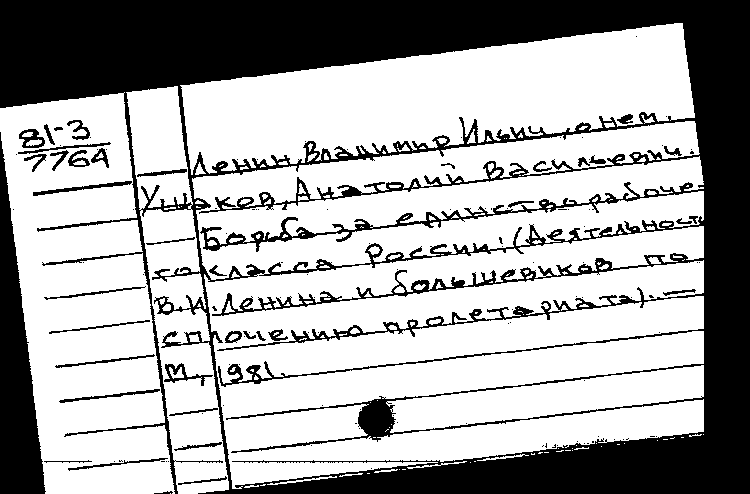 81-3
7764
Ленин, Владимир Ильич, о нем.
Ушаков, Анатолий Васильевич.
Борьба за единство рабоче-
го класса России: (Деятельность
В.И. Ленина и большевиков по
сплочению пролетариата). —
М., 1981.